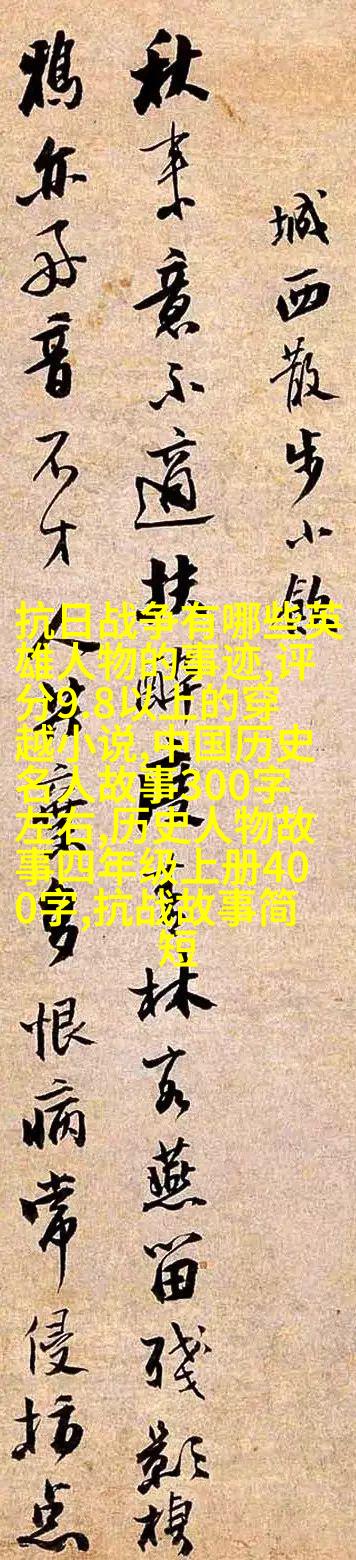 城西散步小飲
秋来意不適扶醉度林客燕留殘影棲
鴉亦好音不才人共棄多恨病常侵拈点
抗日战争有哪些英
雄人物的事迹,评
分9.8以上的穿
越小说,中国历史
名人故事300字
左右,历史人物故
事四年级上册40
0字,抗战故事简
短